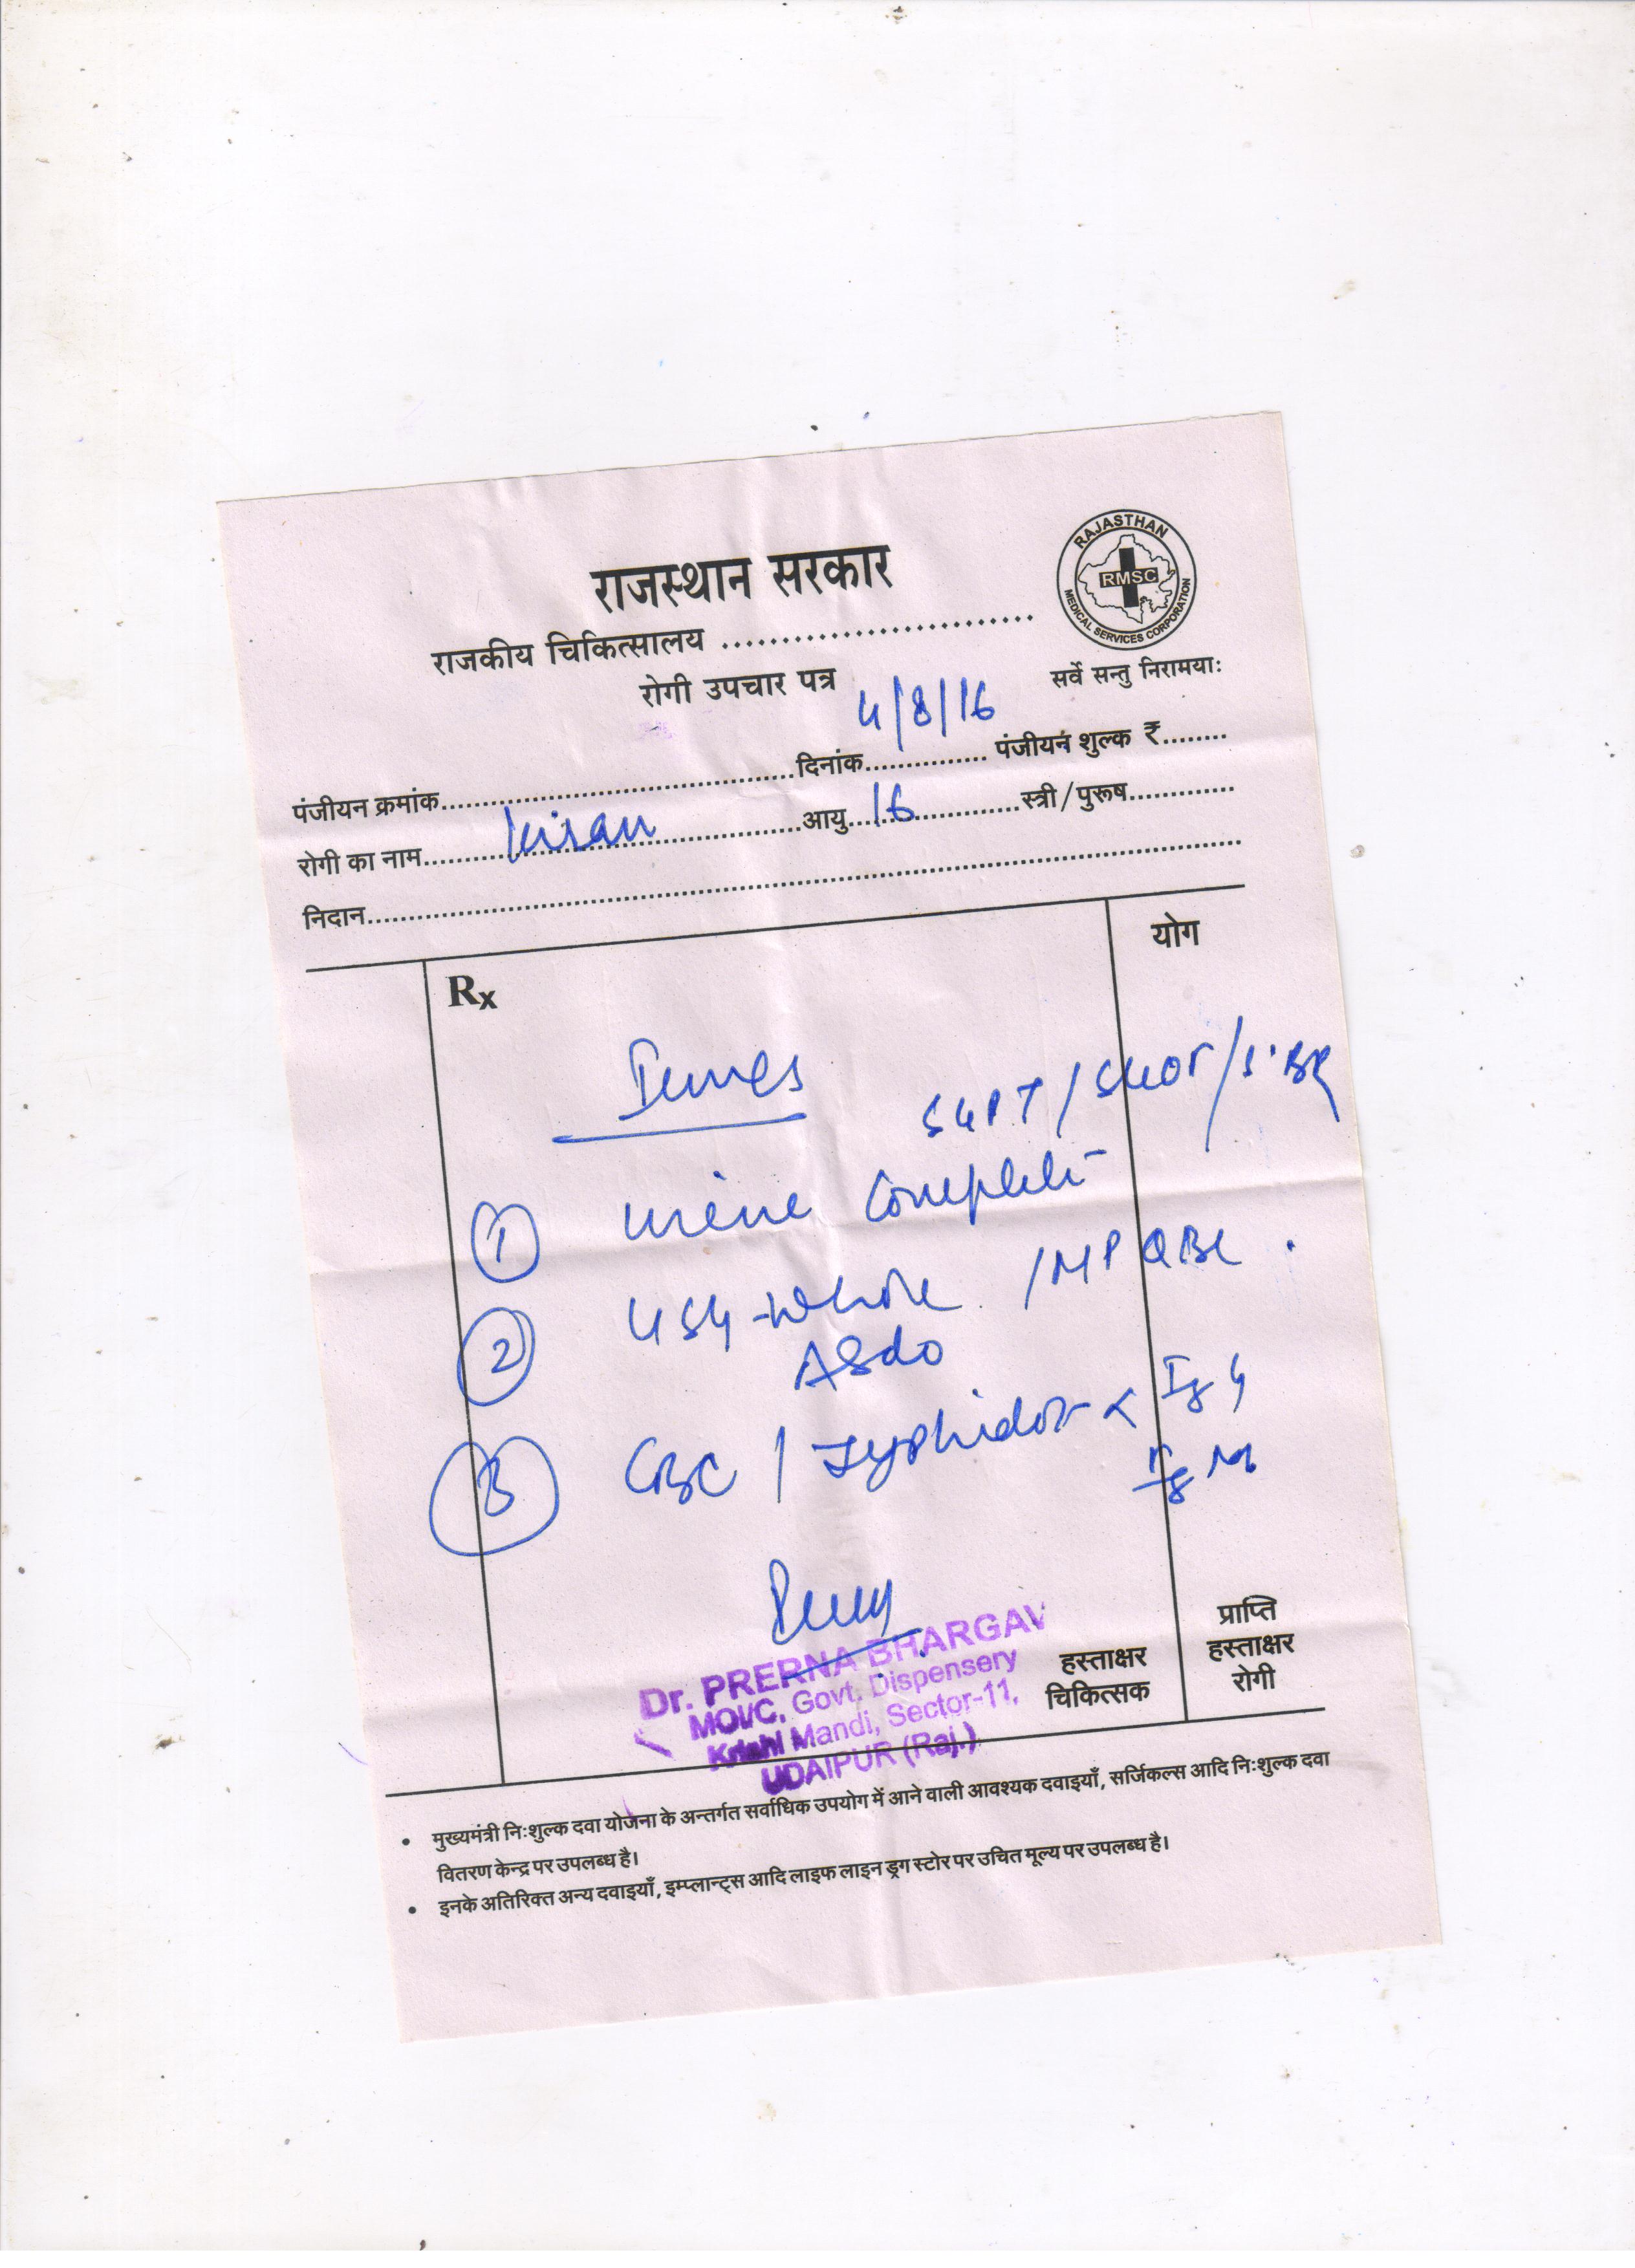 राजस्थान सरकार
RAJASTHAN
RMSC
MEDICAL SERVICES CORPORATION
राजकीय चिकित्सालय ..........................
रोगी उपचार पत्र
सर्वे सन्तु निरामयाः
पंजीयन क्रमांक..............................................दिनांक 4/8/16 पंजीयन शुल्क ₹........
रोगी का नाम Kiran आयु 16 स्त्री/पुरूष.............
निदान....................................................................................................
Rx
योग
SGPT / SGOT / S.
① Urine Complete
② USG - Whole / MP QBC.
Abdo
③ CBC / Typhidot < IgG
IgM
Dr. PRERNA BHARGAV
MOI/C, Govt. Dispensery
Krishi Mandi, Sector-11,
UDAIPUR (Raj.)
हस्ताक्षर
चिकित्सक
प्राप्ति
हस्ताक्षर
रोगी
• मुख्यमंत्री निःशुल्क दवा योजना के अन्तर्गत सर्वाधिक उपयोग में आने वाली आवश्यक दवाइयाँ, सर्जिकल्स आदि निःशुल्क दवा
वितरण केन्द्र पर उपलब्ध है।
• इनके अतिरिक्त अन्य दवाइयाँ, इम्प्लान्ट्स आदि लाइफ लाइन ड्रग स्टोर पर उचित मूल्य पर उपलब्ध है।